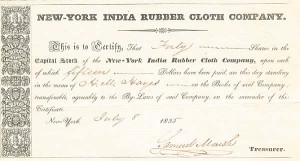 NEW-YORK INDIA RUBBER CLOTH COMPANY.
This is to Certify, That Forty Shares in the
Capital Stock of the New-York India Rubber Cloth Company, upon each
of which fifteen Dollars have been paid, are this day standing
in the name of Hill on the Books of said Company,
transferable, agreeably to the By-Laws of said Company, on the surrender of this
Certificate.
New-York July 8 1835
Samuel Marsh
Treasurer.